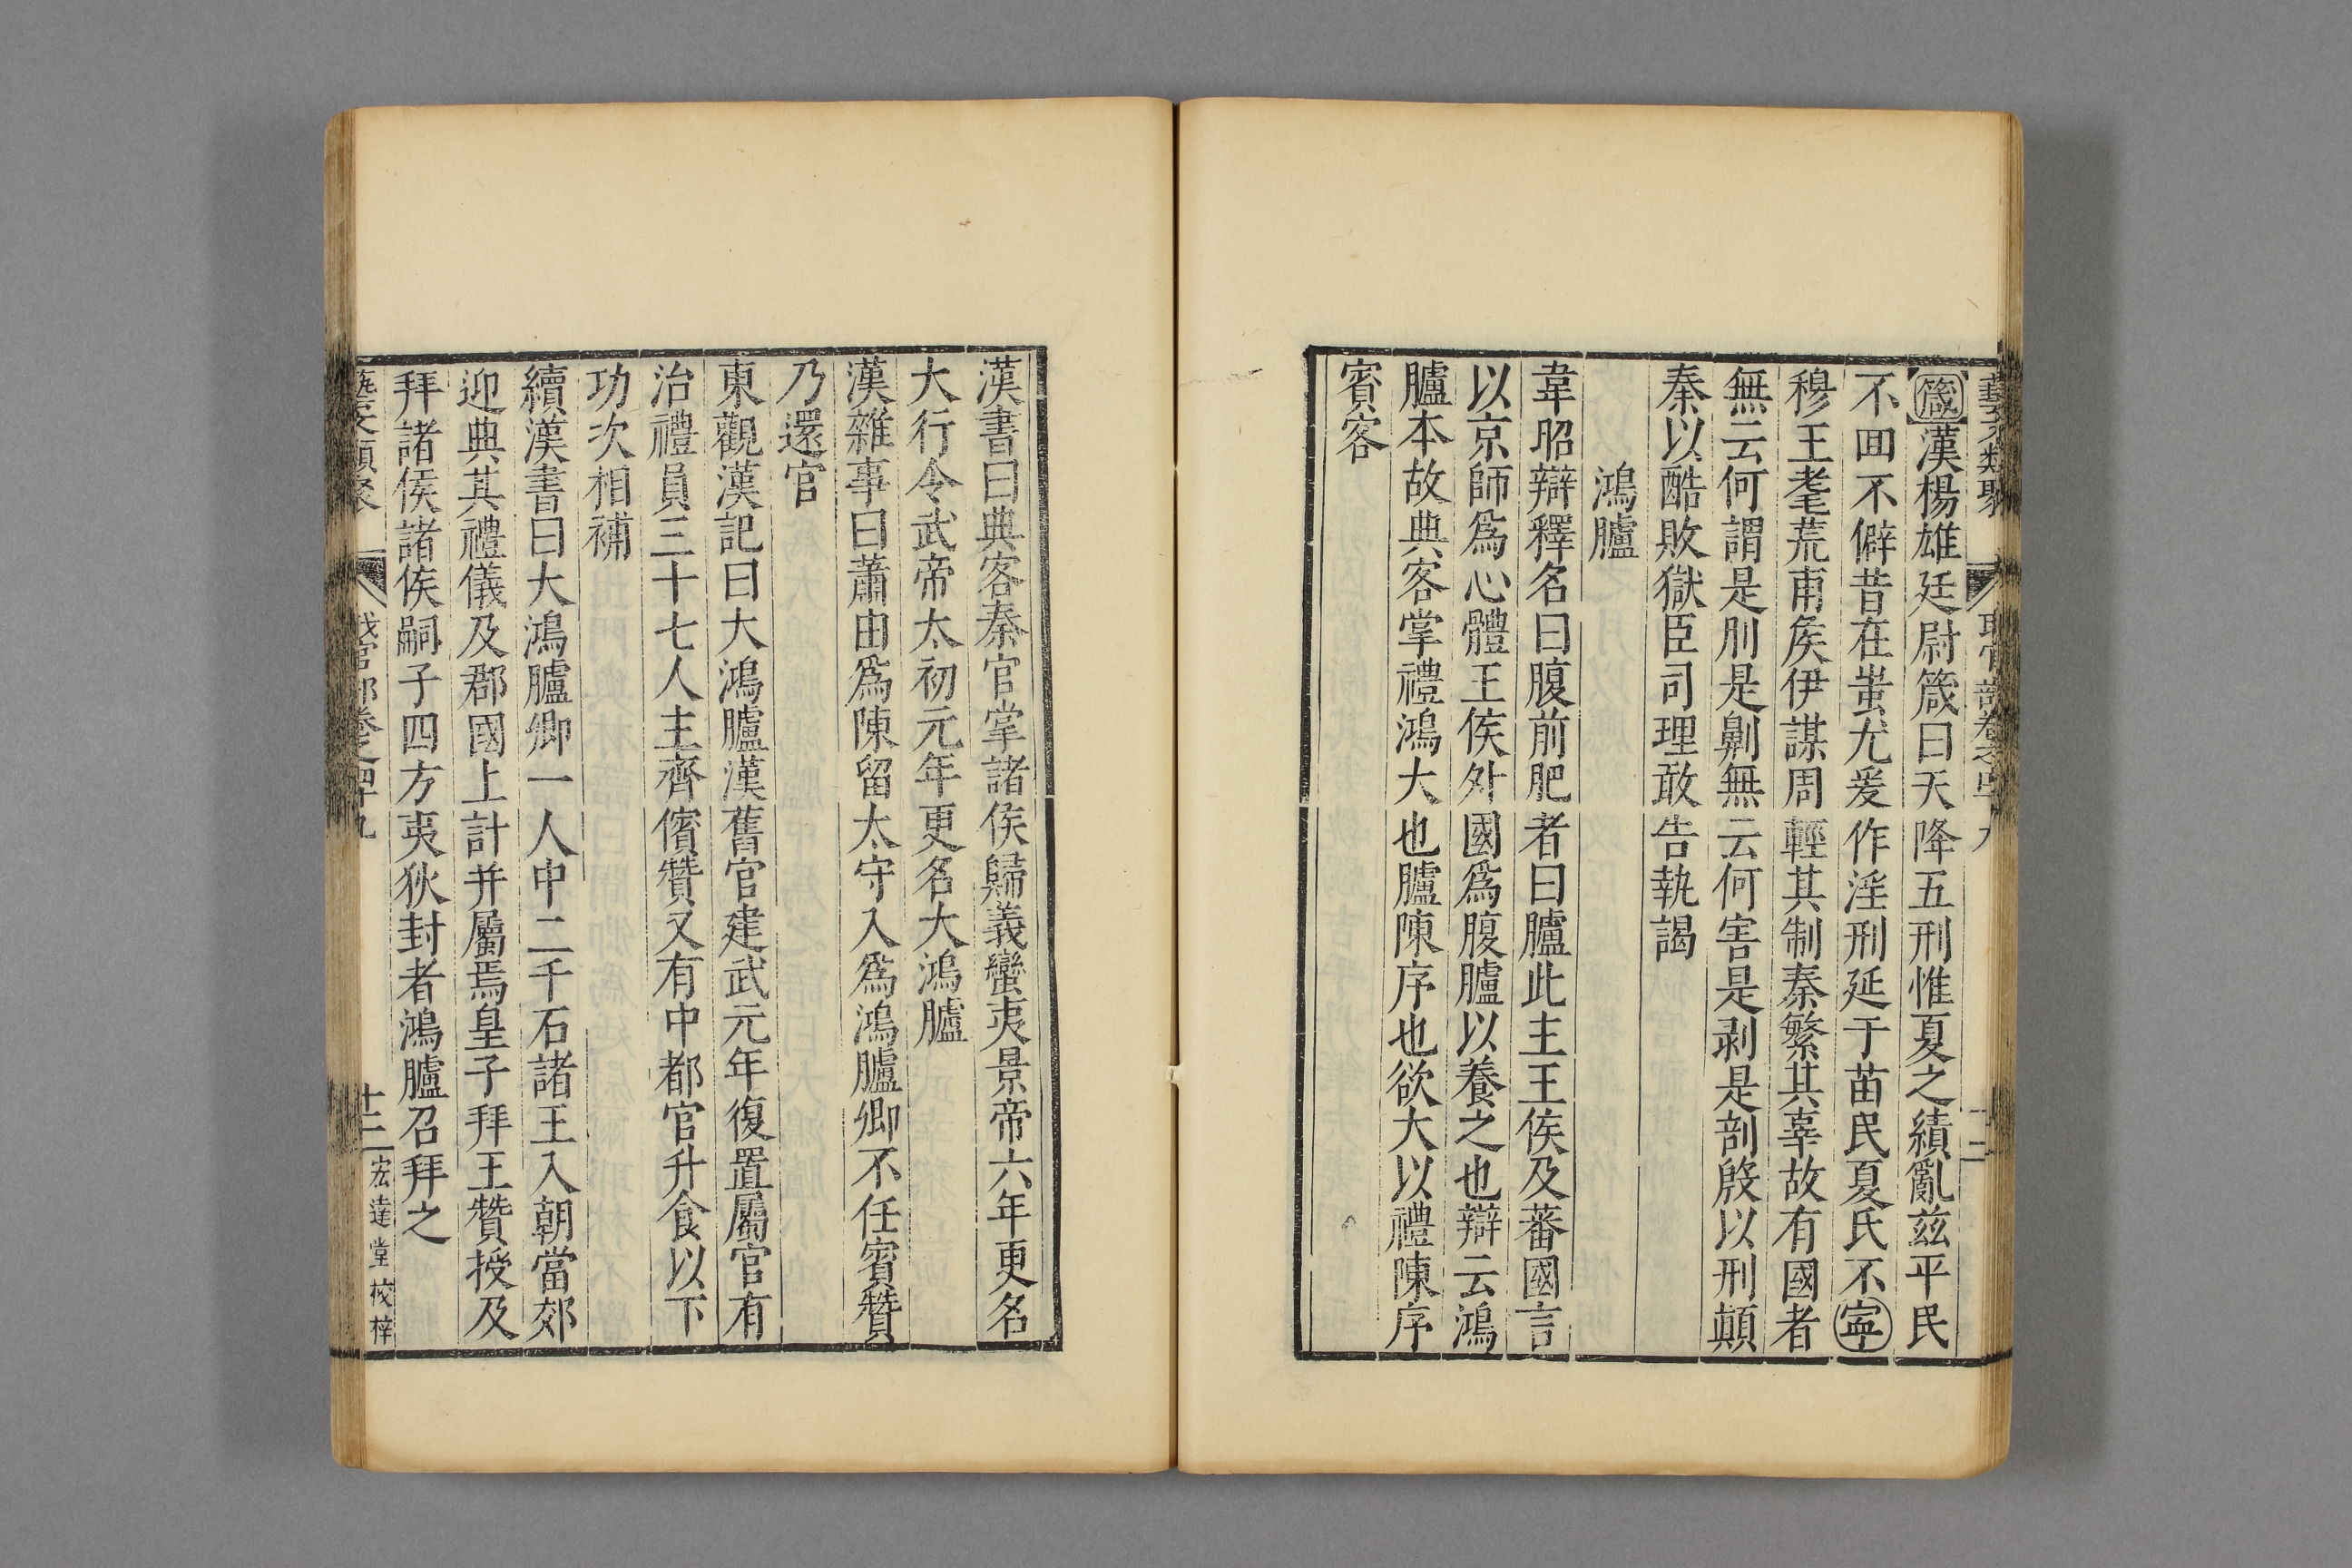 藝文類聚 職官部卷之四十九
箴漢楊雄廷尉箴曰天降五刑惟夏之績亂兹平民
不回不僻昔在蚩尤爰作淫刑延于苗民夏氏不寧
穆王耄荒甫侯伊謀周輕其制秦繁其辜故有國者
無云何謂是刖是劓無云何害是剥是剖殷以刑顛
秦以酷敗獄臣司理敢告執謁
鴻臚
韋昭辯釋名曰腹前肥者曰臚此主王侯及蕃國言
以京師爲心體王侯外國爲腹臚以養之也辯云鴻
臚本故典客掌禮鴻大也臚陳序也欲大以禮陳序
賓客
漢書曰典客秦官掌諸侯歸義蠻夷景帝六年更名
大行令武帝太初元年更名大鴻臚
漢雜事曰蕭由爲陳留太守入爲鴻臚卿不任賓贊
乃還官
東觀漢記曰大鴻臚漢舊官建武元年復置屬官有
治禮員三十七人主齊儐贊又有中都官升食以下
功次相補
續漢書曰大鴻臚卿一人中二千石諸王入朝當郊
迎典其禮儀及郡國上計并屬焉皇子拜王贊授及
拜諸侯諸侯嗣子四方夷狄封者鴻臚召拜之
藝文類聚 職官部卷之四十九 十二 宏達堂校梓